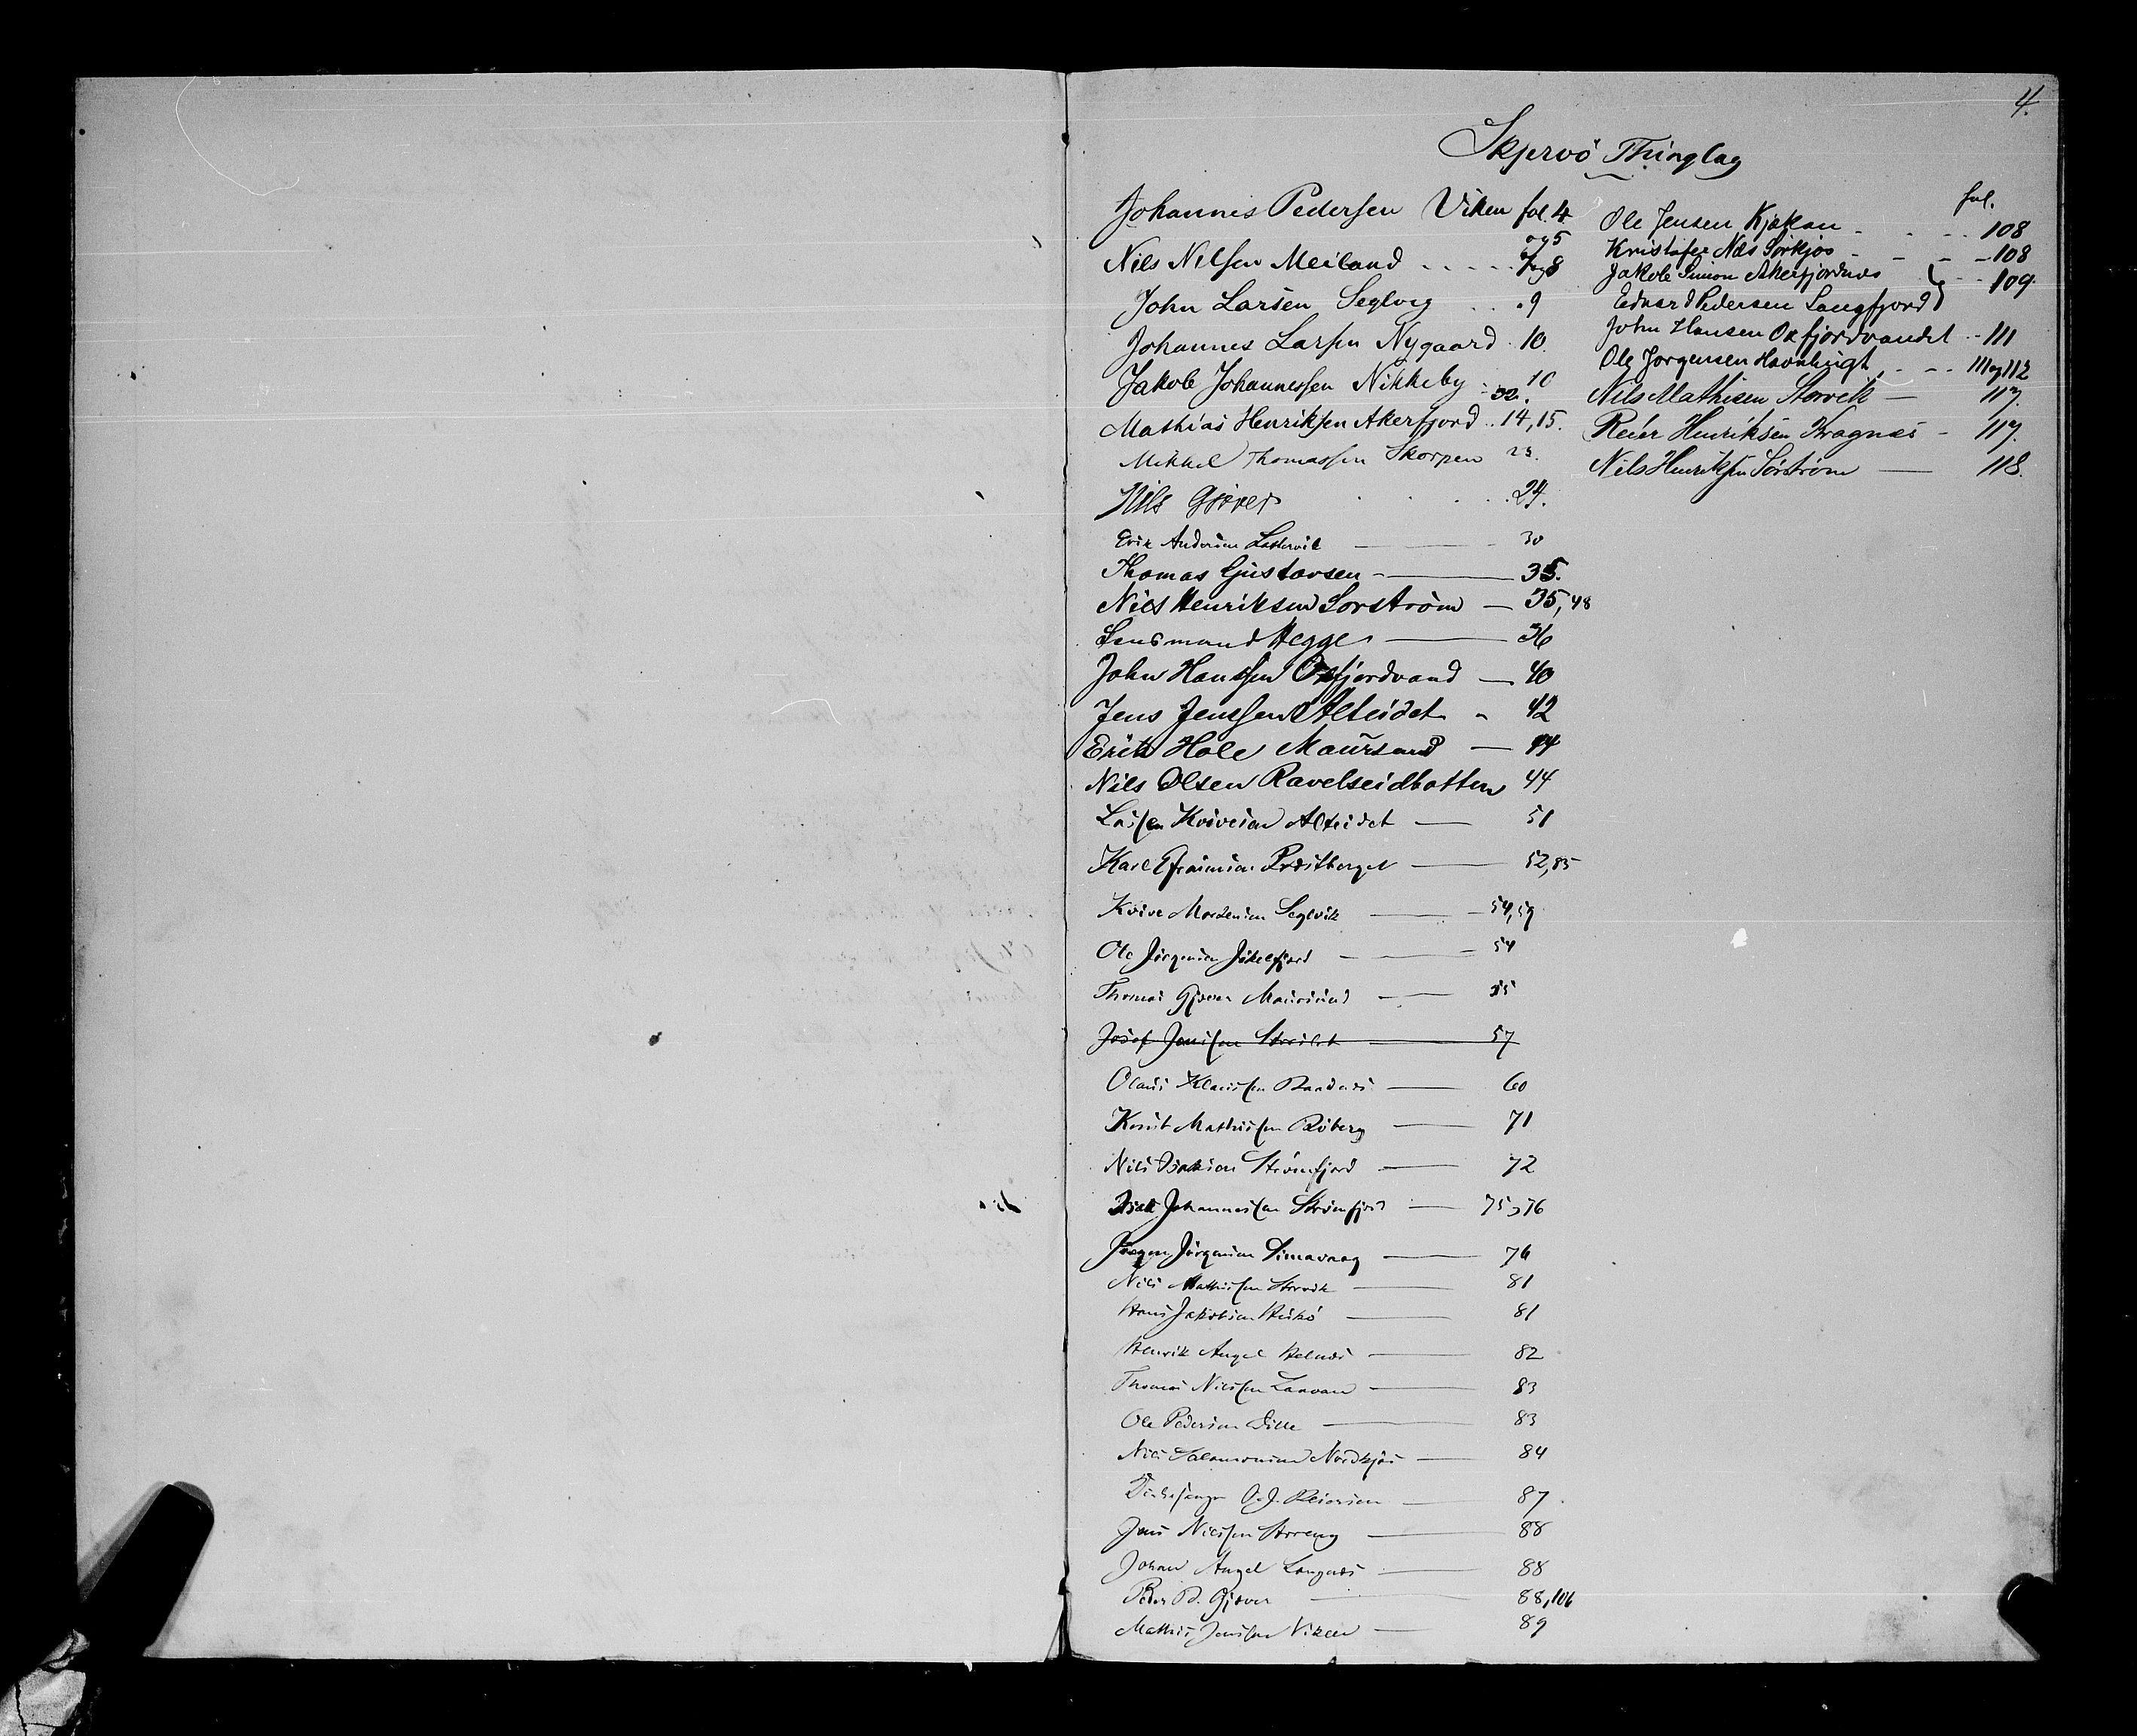 4.
Skjervö Thinglag
Johannes Pedersen Viken fol. 4
og 5
Nils Nilsen Meiland . . . . . 7 og 8
John Larsen Seglvig . . . 9
Johannes Larsen Nygaard . 10.
Jakob Johannessen Nikkeby . 10
32.
Mathias Henriksen Akerfjord . . 14, 15.
Mikkel Thomassen Skorpen 23.
Nils Gjæver . . . . . 24.
Erik Andersen Lökkervik — 30
Thomas Gustavsen — 35.
Nils Henriksen Sorström — 35, 48
Lensmand Hegge — 36
John Hanssen Oxfjordvand — 40
Jens Jenssen Alteidet — 42
Erik Hole Maursund — 44
Nils Olsen Ravelseidbotten 44
Lasse Kvivesen Alteidet — 51
Karl Efraimsen Præstberget — 52, 85
Kvive Mortensen Seglvik — 54, 59
Ole Jörgensen Jökelfjord — 54
Thomas Gjæver Maursund — 55
Josef Jenssen Storeidet — 57
Olaus Klaussen Randnæs — 60
Knut Mathissen Röberg — 71
Nils Isaksen Strömfjord — 72
Isak Johannessen Strömfjord — 75, 76
Jörgen Jörgensen Dimavaag — 76
Nils Mathissen Storvik — 81
Hans Jakobsen Hukö — 81
Henrik Angel Helnæs — 82
Thomas Nilssen Laavan — 83
Ole Pedersen Dille — 83
Nils Salamonsen Nordkjös — 84
Kirkesanger O. J. Reiersen — 87.
Jens Nilssen Storeng — 88
Johan Angel Langnæs — 88
Peder P. Gjæver — 88, 106
Mathis Jenssen Viken — 89
fol.
Ole Jensen Kjækan . . . . 108
Kristofer Nils Sörkjos - - - 108
Jakob Simon Akerfjordnes } - - 109.
Edvard Pedersen Langfjord
John Hansen Oxfjordvandet - - 111
Ole Jorgensen Havnbugt . - - . 111 og 112
Nils Mathisen Storvik — 117.
Reier Henriksen Kragnæs - 117.
Nils Henriksen Sörström — 118.